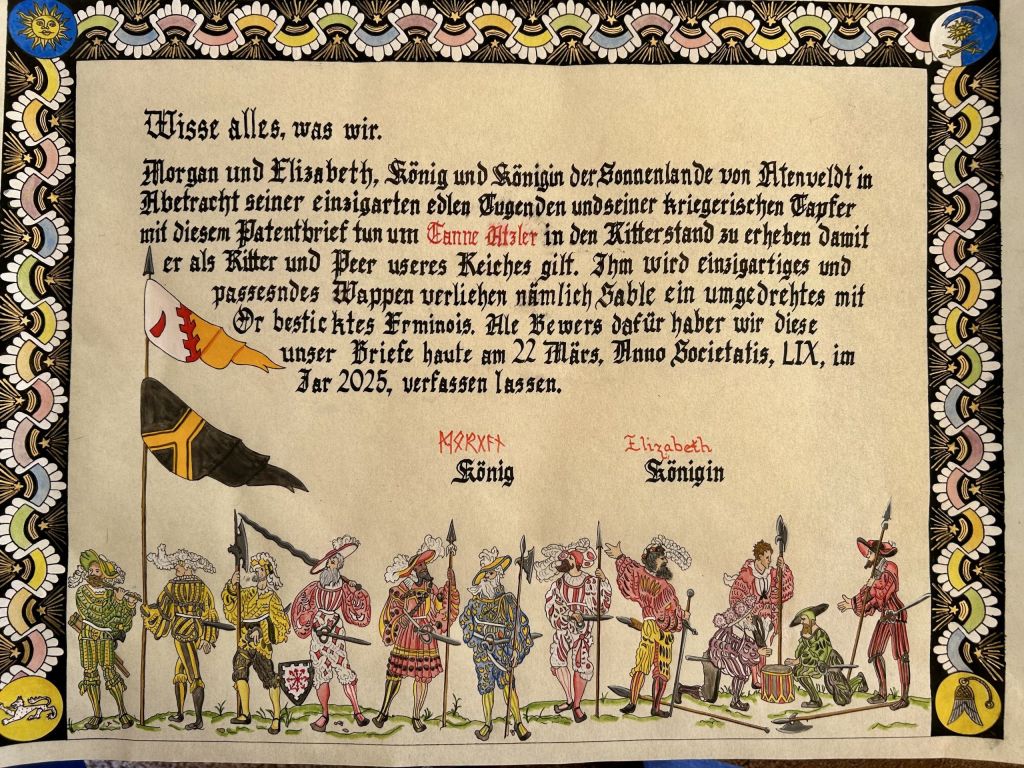 Wisse alles, was wir.
Morgan und Elizabeth, König und Königin der Sonnenlande von Atenveldt in
Abetracht seiner einzigarten edlen Tugenden und seiner kriegerischen Tapfer
mit diesem Patentbrief tun um Tanne Atzler in den Ritterstand zu erheben damit
er als Ritter und Peer useres Reiches gilt. Ihm wird einzigartiges und
passesndes Wappen verliehen nämlich Sable ein umgedrehtes mit
Or besticktes Erminois. Ale Bewers dafür haber wir diese
unser Briefe haute am 22 Märs, Anno Societatis, LIX, im
Jar 2025, verfassen lassen.
ᛗᛟᚱᚷᚨᚾ Elizabeth
König Königin